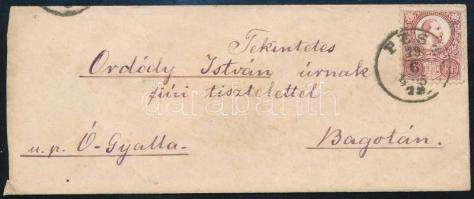 Tekintetes
Ordódy István úrnak
fiúi tisztelettel
u. p. Ó-Gyalla-
Bagotán.
PEST
29
6
72
darabanth